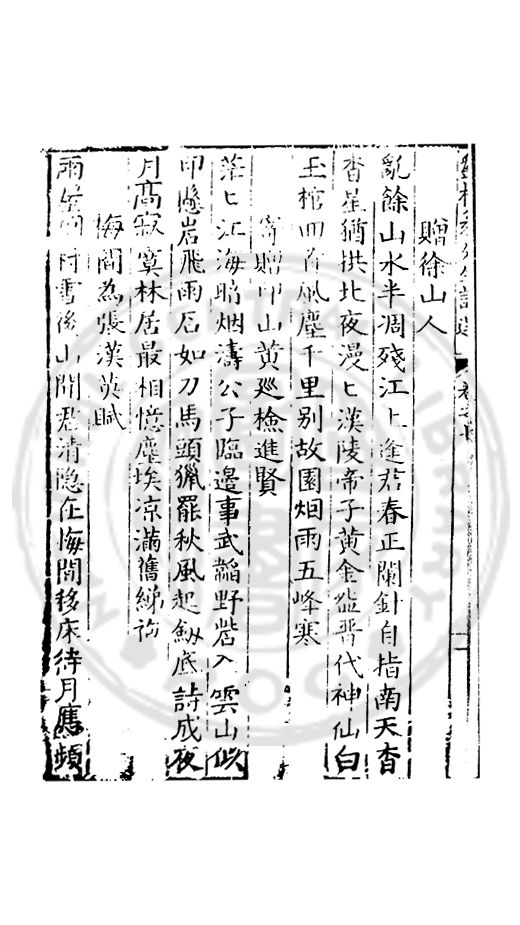 贈徐山人
亂餘山水半凋殘江上逢君春正闌針自指南天杳
杳星猶拱北夜漫〻漢陵帝子黃金盌晉代神仙白
玉棺回首風塵千里别故園烟雨五峰寒
寄贈印山黃廵檢進賢
茫〻江海暗烟濤公子臨邉事武韜野嵓入雲山似
印懸岩飛雨石如刀馬頭獵罷秋風起劔底詩成夜
月高寂寞林居最相憶塵埃凉滿舊綈袍
梅間為張漢英賦
村雪後山開君清隐在梅間移床待月應頻